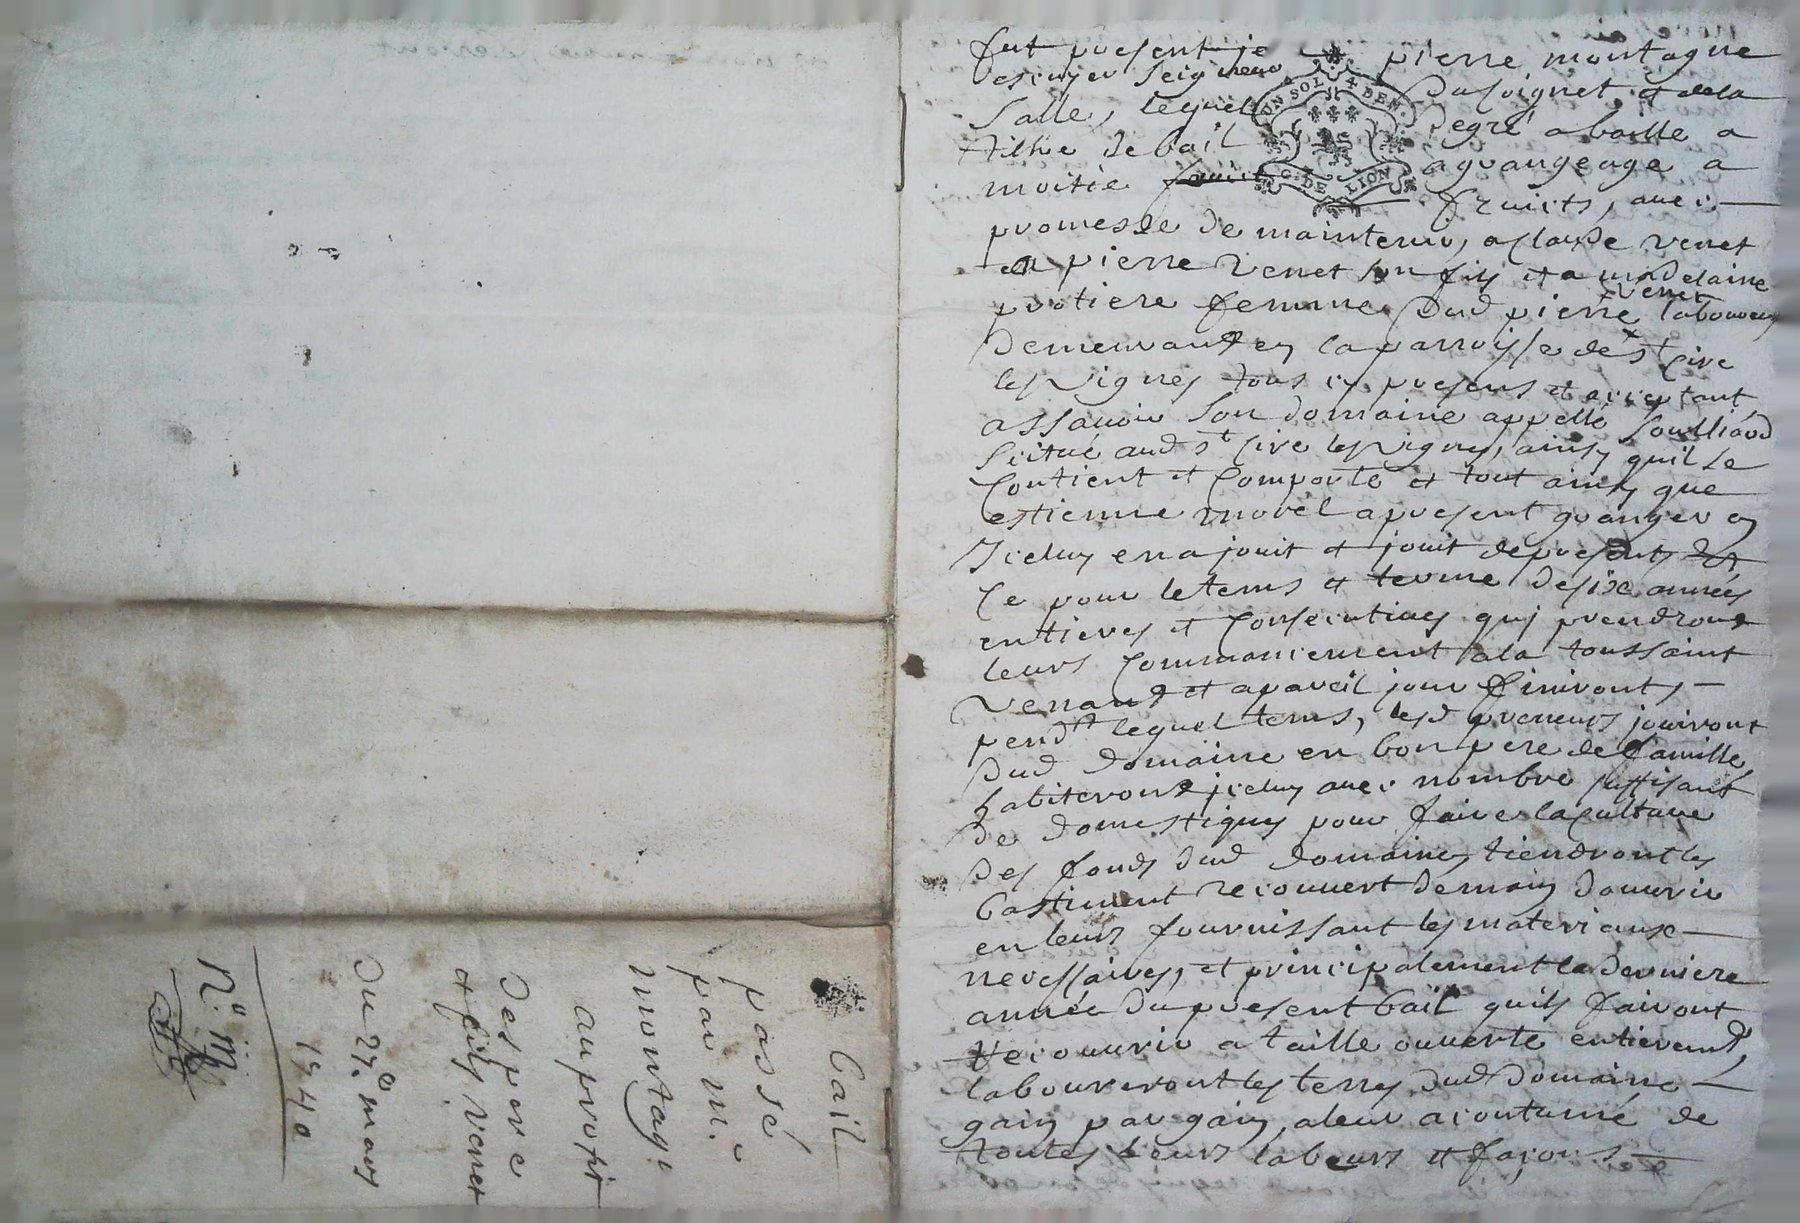 bail
passé
par m.
montag.
au profit
des pere
et fils venet
du 27.e mars
1740
fut present
pierre montagne
escuyer seigneur
salle, lequel
degré a baillé a
tiltre de bail
a grangeage a
moitie
fruicts, avec
UN SOL 4 DEN.
G. DE LION
promesse de maintenir, a claude venet
et a pierre venet son fils et a madelaine
protiere femme dud pierre venet laboureurs
demeurants en la parroisse de st cire
les vignes tous cy presens et acceptant
assavoir son domaine appellé souilliard
scitué aud st cire les vignes, ainsy quil se
contient et comporte et tout ainsy que
estienne morel apresent granger en
Iceluy en a jouit et jouit depresent
ce pour le tems et terme de six années
entieres et consecutives qui prendront
leurs commancement a la toussaint
venant et a pareil jour finiront
pendt lequel tems, lesd preneurs jouiront
dud domaine en bon pere de famille
habiteront iceluy avec nombre suffisant
de domestiques pour faire la culture
des fonds dud domaine, tiendront les
bastiment recouvert de main douvrier
en leurs fournissant les materiaux
necessaires, et principalement la derniere
année du present bail quils fairont
recouvrir a taille ouverte entieremt,
laboureront les terres dud domaine
gain par gain, a leur acoutumé de
toutes leurs labeurs et façons